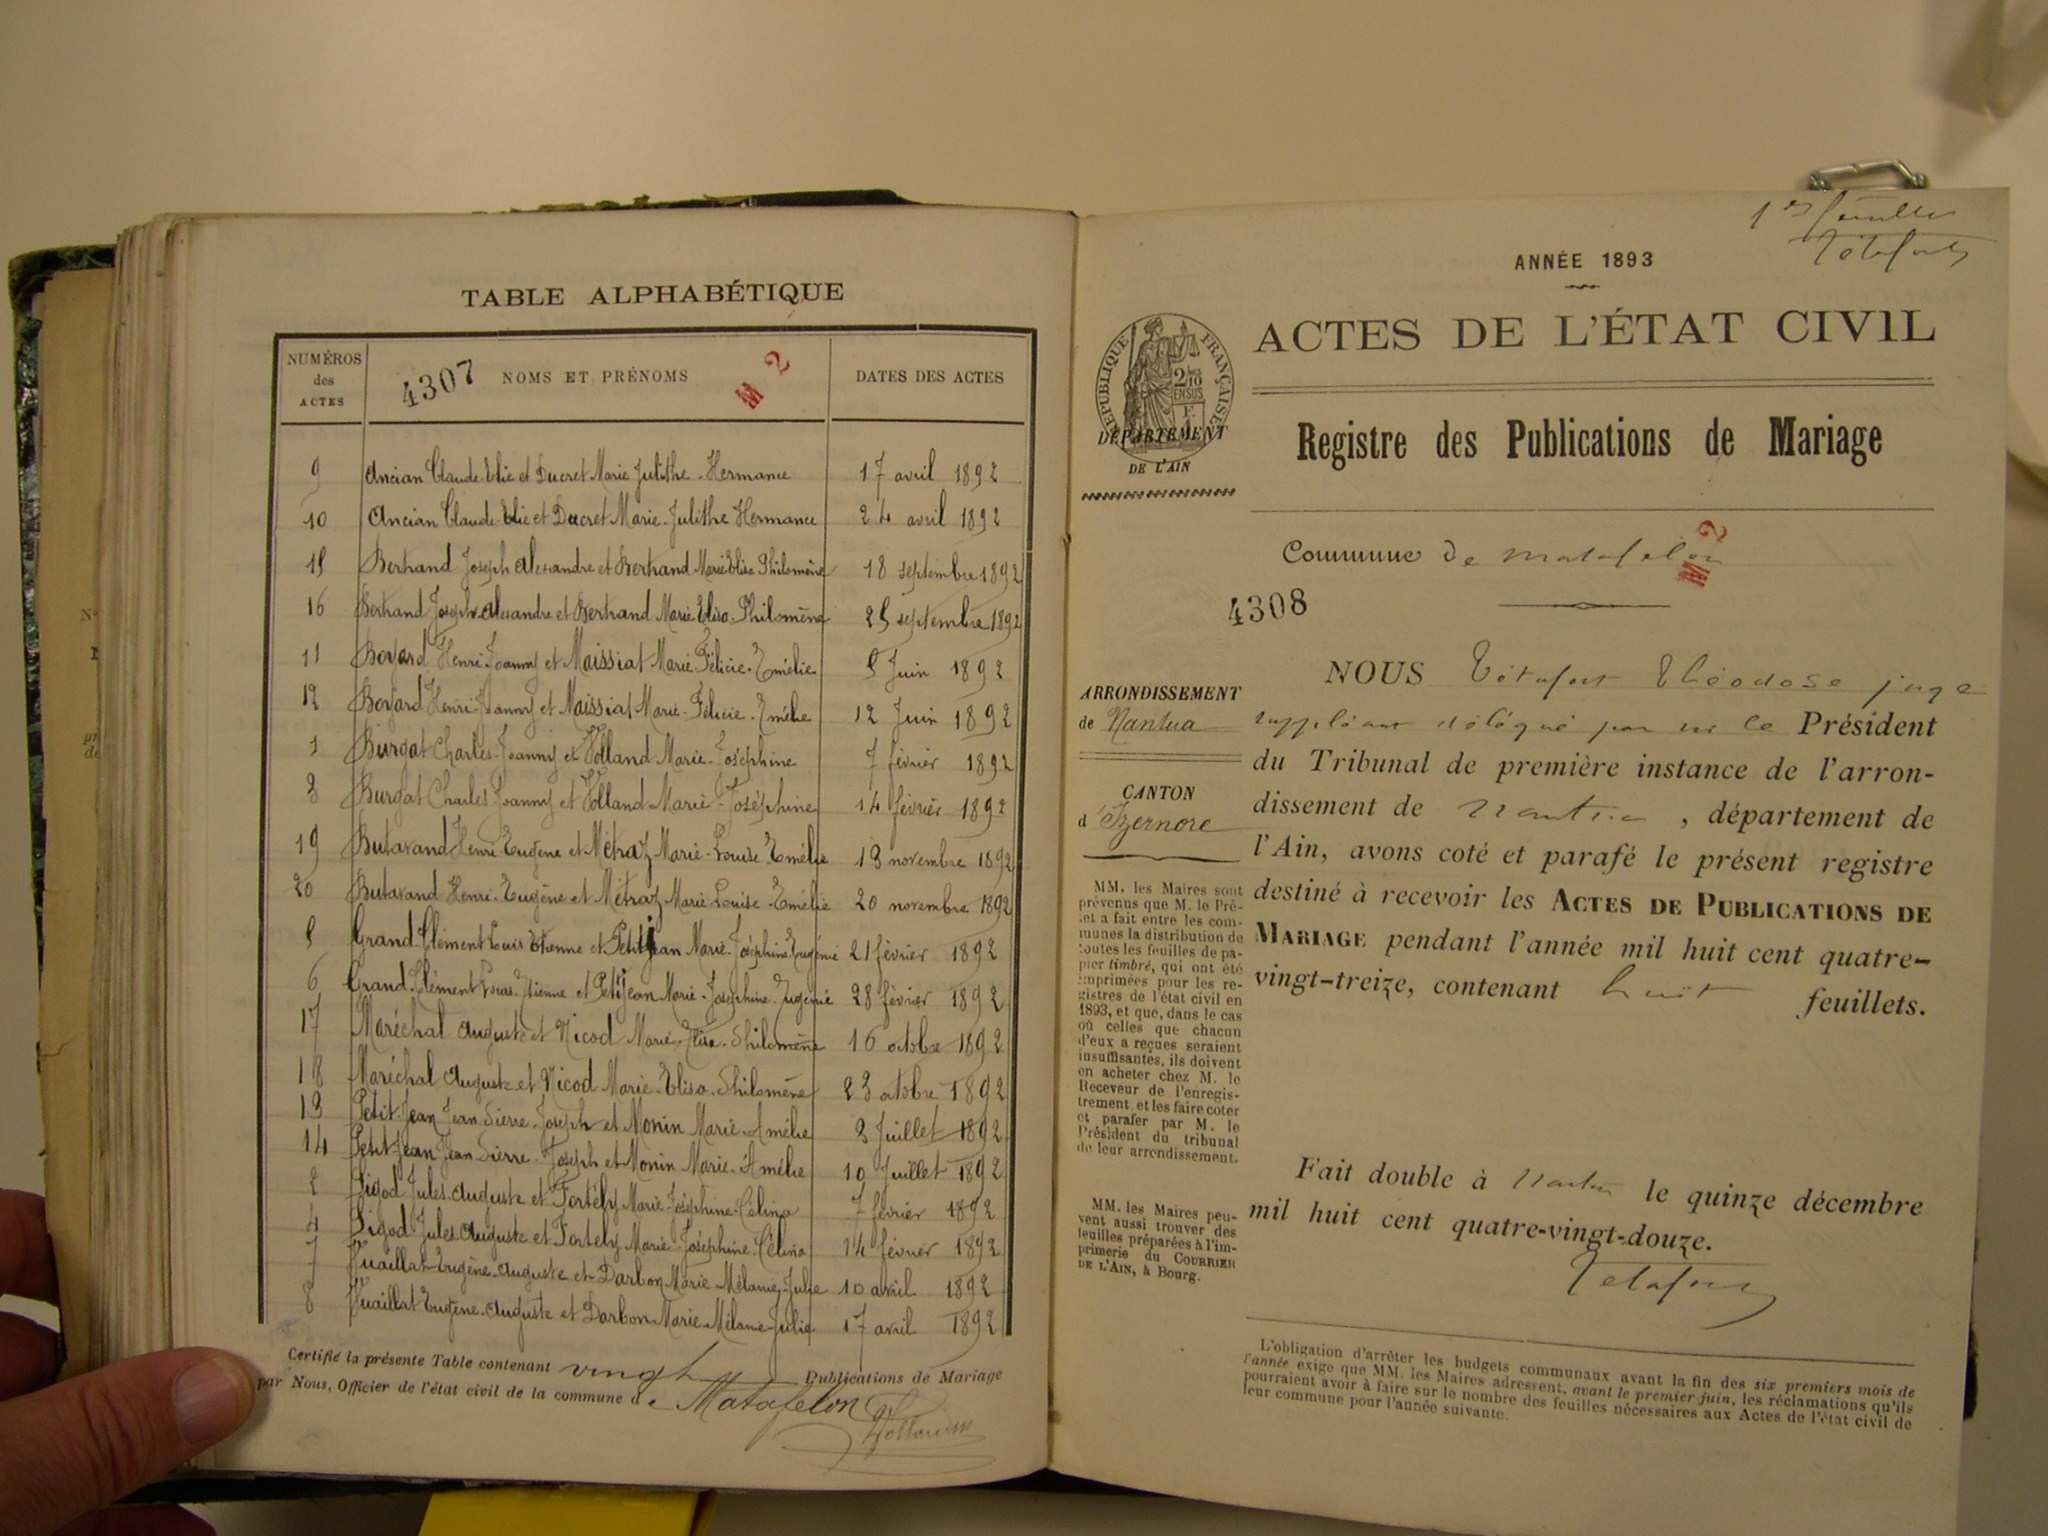 TABLE ALPHABÉTIQUE
NUMÉROS des ACTES
4307 NOMS ET PRÉNOMS M 2
DATES DES ACTES
9 Ancian Claude-Elie et Ducret Marie Julithe-Hermance 17 avril 1892
10 Ancian Claude-Elie et Ducret Marie-Julithe Hermance 24 avril 1892
15 Bertrand Joseph Alexandre et Bertrand Marie Elisa Philomène 18 septembre 1892
16 Bertrand Joseph-Alexandre et Bertrand Marie Elisa-Philomène 25 septembre 1892
11 Boyard Henri-Joanny et Maissiat Marie-Félicie-Emélie 5 Juin 1892
12 Boyard Henri-Joanny et Maissiat Marie-Félicie-Emélie 12 Juin 1892
1 Burgat Charles-Joanny et Volland Marie-Joséphine 7 février 1892
3 Burgat Charles Joanny et Volland Marie-Joséphine 14 février 1892
19 Butavand Henri-Eugène et Métraz Marie-Louise Emélie 13 novembre 1892
20 Butavand Henri-Eugène et Métraz Marie Louise-Emélie 20 novembre 1892
5 Grand-Clément Louis Etienne et Petitjean Marie-Joséphine-Eugénie 21 février 1892
6 Grand-Clément Louis-Etienne et Petitjean Marie-Joséphine-Eugénie 28 février 1892
17 Maréchal Auguste et Nicod Marie-Elisa-Philomène 16 octobre 1892
18 Maréchal Auguste et Nicod Marie-Elisa-Philomène 23 octobre 1892
13 Petit-Jean Jean-Pierre-Joseph et Monin Marie-Amélie 3 Juillet 1892
14 Petit-Jean Jean Pierre-Joseph et Monin Marie-Amélie 10 Juillet 1892
2 Pigod Jules-Auguste et Fortély Marie-Joséphine-Célina 7 février 1892
4 Pigod Jules Auguste et Fortely Marie Joséphine-Célina 14 février 1892
7 Vuaillat Eugène-Auguste et Darbon Marie Mélanie-Julie 10 avril 1892
8 Vuaillat Eugène-Auguste et Darbon Marie-Mélanie-Julie 17 avril 1892
Certifié la présente Table contenant vingt Publications de Mariage
par Nous, Officier de l'état civil de la commune de Matafelon
1er feuillet
Tétafort
ANNÉE 1893
ACTES DE L'ÉTAT CIVIL
RÉPUBLIQUE FRANÇAISE
2/10 EN SUS
DÉPARTEMENT
DE L'AIN
Registre des Publications de Mariage
Commune de Matafelon
M 2
4308
ARRONDISSEMENT
de Nantua
CANTON
d'Izernore
NOUS Tétafort Théodose juge
suppléant délégué par M le Président
du Tribunal de première instance de l'arron-
dissement de Nantua, département de
l'Ain, avons coté et parafé le présent registre
destiné à recevoir les ACTES DE PUBLICATIONS DE
MARIAGE pendant l'année mil huit cent quatre-
vingt-treize, contenant huit feuillets.
Fait double à Nantua le quinze décembre
mil huit cent quatre-vingt-douze.
Tétafort
MM. les Maires sont
prévenus que M. le Pré-
fet a fait entre les com-
munes la distribution de
toutes les feuilles de pa-
pier timbré, qui ont été
imprimées pour les re-
gistres de l'état civil en
1893, et que, dans le cas
où celles que chacun
d'eux a reçues seraient
insuffisantes, ils doivent
en acheter chez M. le
Receveur de l'enregis-
trement et les faire coter
et parafer par M. le
Président du tribunal
de leur arrondissement.
MM. les Maires peu-
vent aussi trouver des
feuilles préparées à l'im-
primerie du COURRIER
DE L'AIN, à Bourg.
L'obligation d'arrêter les budgets communaux avant la fin des six premiers mois de
l'année exige que MM. les Maires adressent, avant le premier juin, les réclamations qu'ils
pourraient avoir à faire sur le nombre des feuilles nécessaires aux Actes de l'état civil de
leur commune pour l'année suivante.